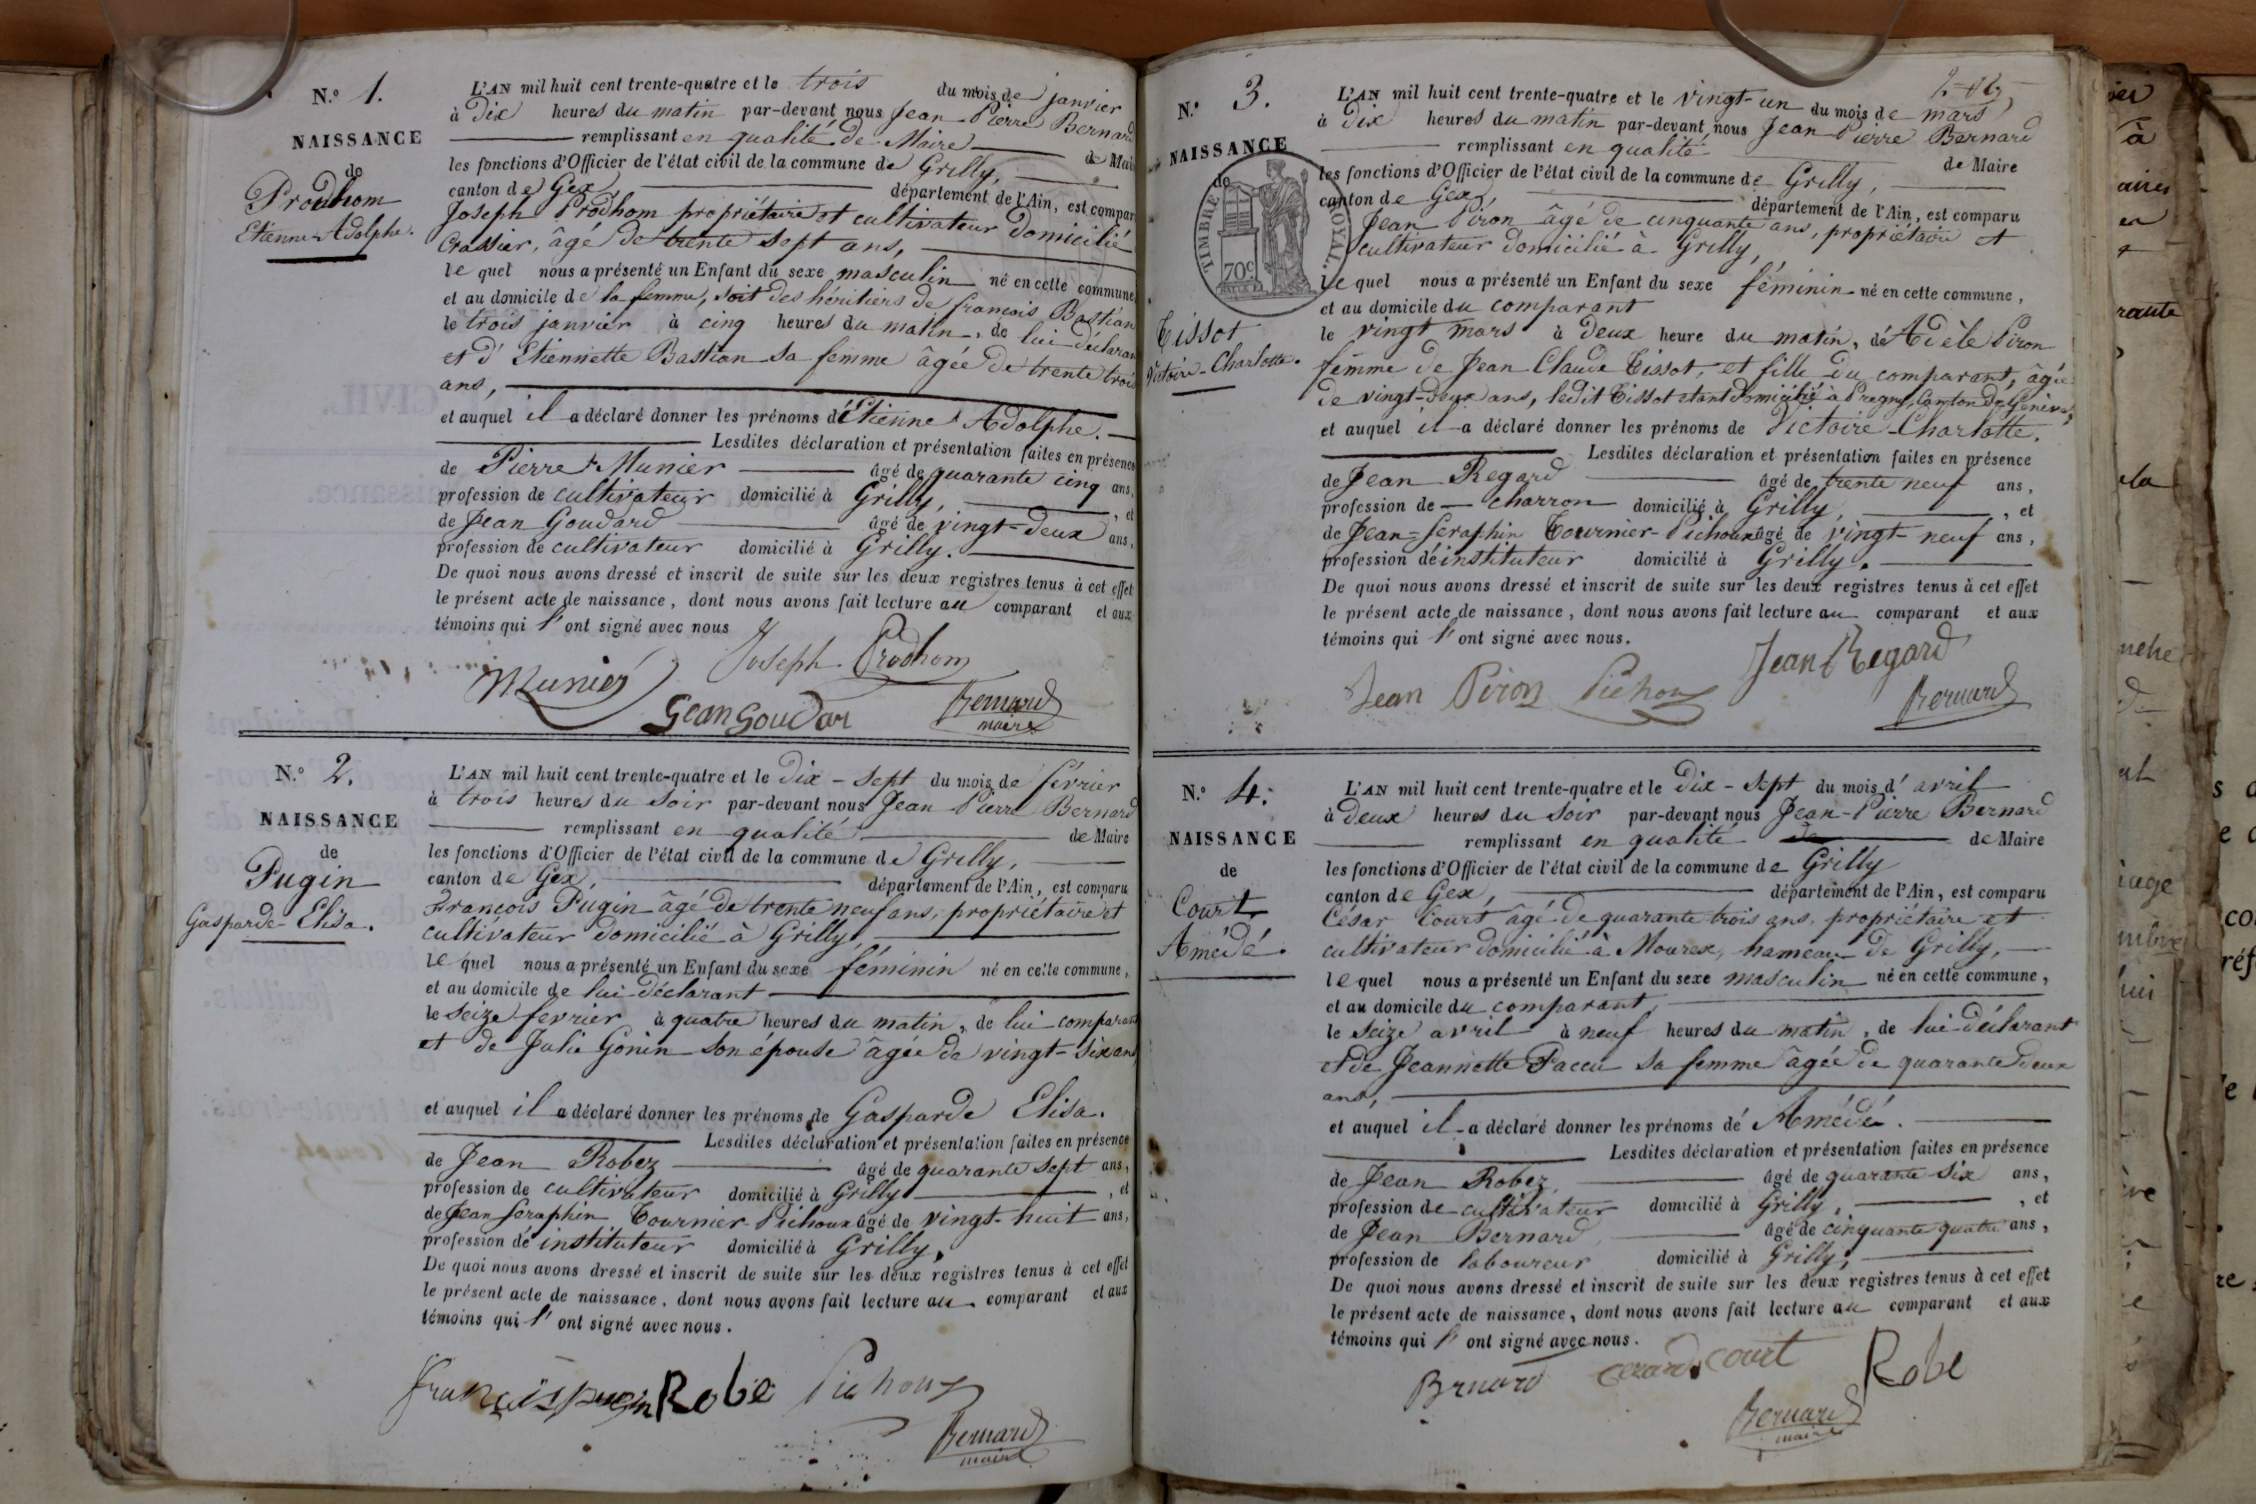 N.º 1.
NAISSANCE
de
Prodhom
Etienne Adolphe.
L'AN mil huit cent trente-quatre et le trois du mois de janvier
à Dix heures du matin par-devant nous Jean Pierre Bernard
remplissant en qualité de Maire de Mai
les fonctions d'Officier de l'état civil de la commune de Grilly,
canton de Gex, département de l'Ain, est compar
Joseph Prodhom propriétaire et cultivateur domicilié
Crassier, âgé de trente sept ans,
le quel nous a présenté un Enfant du sexe masculin né en cette commune
et au domicile de la femme, soit des héritiers de françois Bastian
le trois janvier à cinq heures du matin, de lui déclaran
et d'Etiennette Bastian sa femme âgée de trente trois
ans,
et auquel il a déclaré donner les prénoms d'Etienne Adolphe.
Lesdites déclaration et présentation faites en présence
de Pierre Munier âgé de quarante cinq ans,
profession de cultivateur domicilié à Grilly, , et
de Jean Goudard âgé de vingt-deux ans,
profession de cultivateur domicilié à Grilly.
De quoi nous avons dressé et inscrit de suite sur les deux registres tenus à cet effet
le présent acte de naissance, dont nous avons fait lecture au comparant et aux
témoins qui l'ont signé avec nous
Joseph Prodhom
Munier
Gean Goudar
Bernard
maire
N.º 2.
NAISSANCE
de
Pugin
Gasparde Elisa.
L'AN mil huit cent trente-quatre et le Dix-sept du mois de février
à trois heures du soir par-devant nous Jean Pierre Bernard
remplissant en qualité de Maire
les fonctions d'Officier de l'état civil de la commune de Grilly,
canton de Gex, département de l'Ain, est comparu
François Pugin âgé de trente neuf ans, propriétaire et
cultivateur domicilié à Grilly,
le quel nous a présenté un Enfant du sexe féminin né en cette commune,
et au domicile de lui déclarant
le seize fevrier à quatre heures du matin, de lui comparant
et de Julie Gonin son épouse âgée de vingt-six ans
et auquel il a déclaré donner les prénoms de Gasparde Elisa.
Lesdites déclaration et présentation faites en présence
de Jean Robez âgé de quarante sept ans,
profession de cultivateur domicilié à Grilly , et
de Jean Seraphin Tournier-Pichoux âgé de vingt-huit ans,
profession d'instituteur domicilié à Grilly.
De quoi nous avons dressé et inscrit de suite sur les deux registres tenus à cet effet
le présent acte de naissance, dont nous avons fait lecture au comparant et aux
témoins qui l'ont signé avec nous.
françois pugin Robe Pichoux
Bernard
maire
N.º 3.
NAISSANCE
de
TIMBRE ROYAL.
70c
Tissot
Victoire-Charlotte.
L'AN mil huit cent trente-quatre et le vingt-un du mois de mars
à Dix heures du matin par-devant nous Jean Pierre Bernard
remplissant en qualité de Maire
les fonctions d'Officier de l'état civil de la commune de Grilly,
canton de Gex, département de l'Ain, est comparu
Jean Piron âgé de cinquante ans, propriétaire et
cultivateur domicilié à Grilly,
le quel nous a présenté un Enfant du sexe féminin né en cette commune,
et au domicile du comparant
le vingt mars à deux heure du matin, d'Adèle Piron
femme de Jean Claude Tissot, et fille du comparant, âgée
de vingt-deux ans, ledit Tissot étant domicilié à Pregny, Canton de Genève,
et auquel il a déclaré donner les prénoms de Victoire-Charlotte.
Lesdites déclaration et présentation faites en présence
de Jean Regard âgé de trente neuf ans,
profession de charron domicilié à Grilly, , et
de Jean-Seraphin Tournier-Pichoux âgé de vingt-neuf ans,
profession d'instituteur domicilié à Grilly.
De quoi nous avons dressé et inscrit de suite sur les deux registres tenus à cet effet
le présent acte de naissance, dont nous avons fait lecture au comparant et aux
témoins qui l'ont signé avec nous.
Jean Piron Pichoux Jean Regard
Bernard
N.º 4.
NAISSANCE
de
Court
Amédé.
L'AN mil huit cent trente-quatre et le Dix-sept du mois d'avril
à deux heures du soir par-devant nous Jean-Pierre Bernard
remplissant en qualité de de Maire
les fonctions d'Officier de l'état civil de la commune de Grilly
canton de Gex, département de l'Ain, est comparu
César Court âgé de quarante trois ans, propriétaire et
cultivateur domicilié à Mourex, hameau de Grilly,
le quel nous a présenté un Enfant du sexe masculin né en cette commune,
et au domicile du comparant,
le seize avril à neuf heures du matin, de lui déclarant
et de Jeannette Paccu sa femme âgée de quarante deux
ans,
et auquel il a déclaré donner les prénoms d'Amédé.
Lesdites déclaration et présentation faites en présence
de Jean Robez, âgé de quarante six ans,
profession de cultivateur domicilié à Grilly, , et
de Jean Bernard, âgé de cinquante quatre ans,
profession de laboureur domicilié à Grilly,
De quoi nous avons dressé et inscrit de suite sur les deux registres tenus à cet effet
le présent acte de naissance, dont nous avons fait lecture au comparant et aux
témoins qui l'ont signé avec nous.
court Robe
Bernard
maire